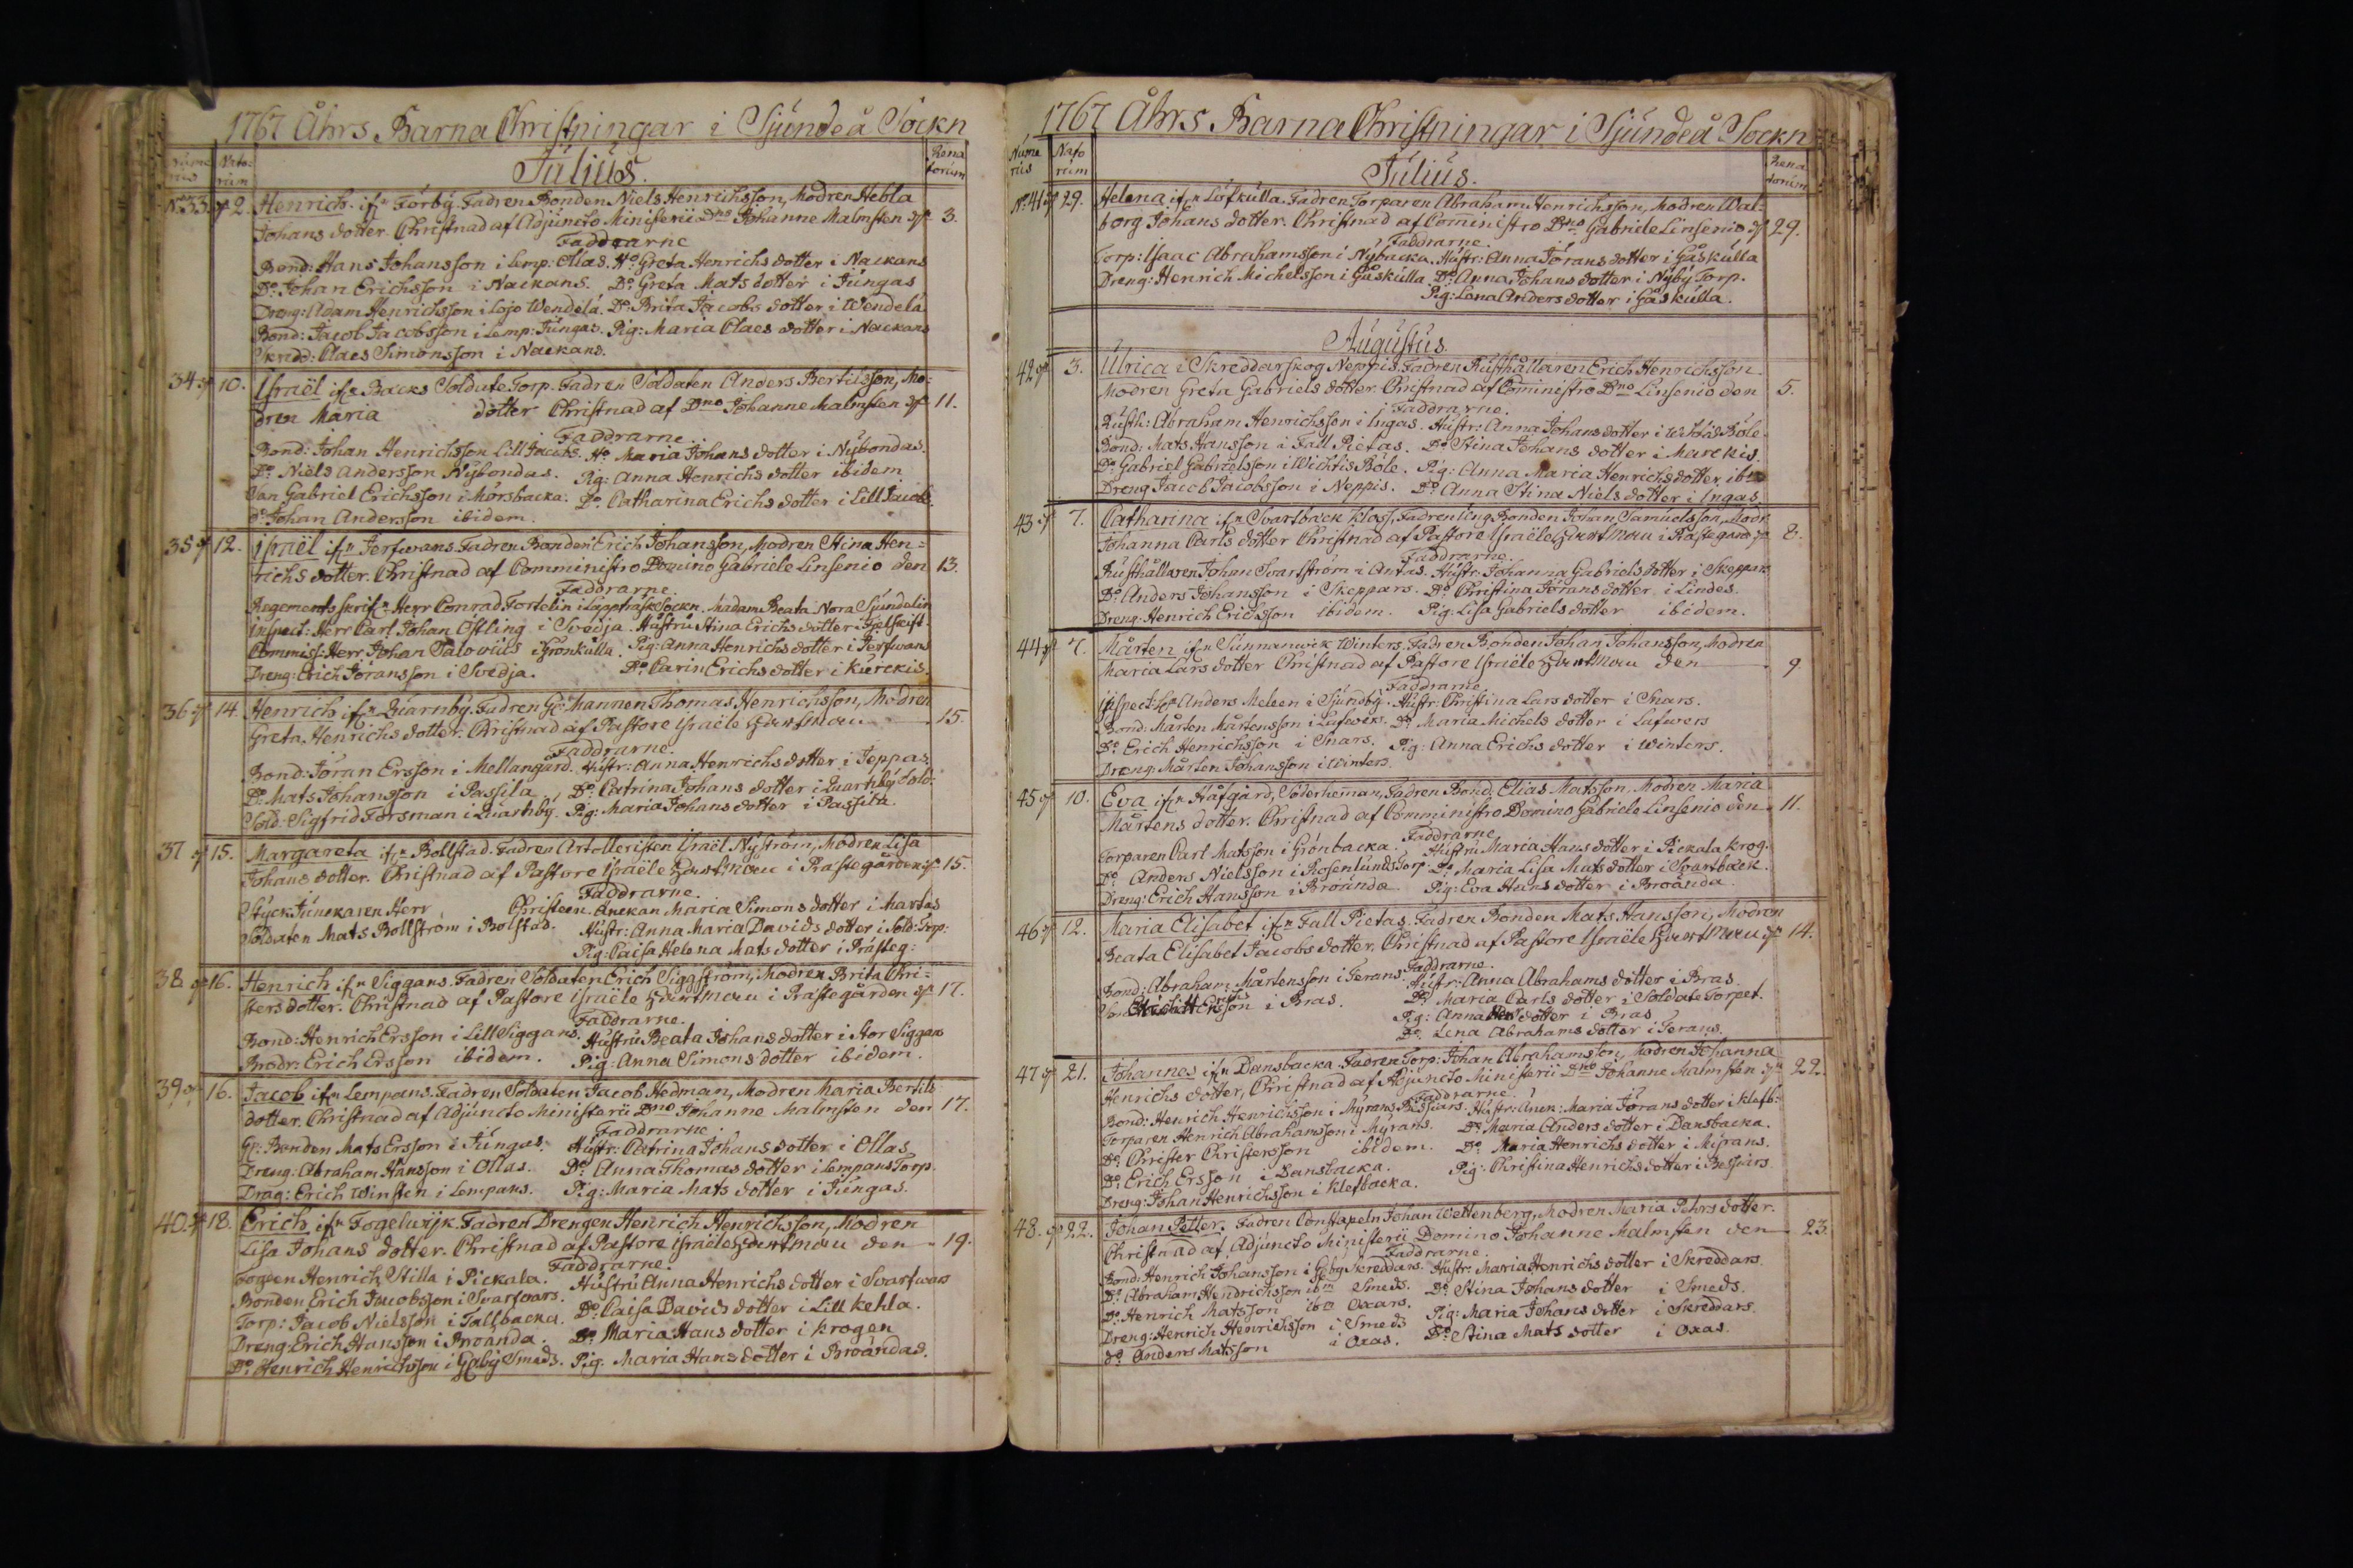 1767 Åhrs Barna Christningar i Sjundeå Sockn
Nume rus
Nato: rum
Julius.
Rena torum
N:33. 2. Henrich ifn Förby. Fadren Bonden Niels Henrichsson, Modren Hebla
Johans dotter. Christnad af Adjuncto Ministerii Dno Johanne Malmsten 3.
Faddrarne
Bond: Hans Johansson i Lemp: Ollas. Ho Greta Henrichs dotter i Nackans
Do Johan Erichsson i Nackans. Do Greta Mats dotter i Jungas
Dreng: Adam Henrichsson i Lojo Wendelä. Do Brita Jacobs dotter i Wendelä
Bond: Jacob Jacobsson i Lemp: Jungas. Pig: Maria Claes dotter i Nackans
Skredd: Claes Simonsson i Nackans.
34 10. Israël ifn Backs Soldate Torp. Fadren Soldaten Anders Bertilsson, Mo=
dren Maria dotter Christnad af Dno Johanne Malmsten 11.
Faddrarne.
Bond: Johan Henrichsson Lill Jacobs. Ho Maria Johans dotter i Nybondas.
Do Niels Andersson Nybondas. Pig: Anna Henrichs dotter ibidem
Gabriel Erichsson i Morsbacka. Do Catharina Erichs dotter i Lill Jacobs.
do Johan Andersson ibidem.
35 12. Israël ifn Jerfwans. Fadren Bonden Erich Johansson, Modren Stina Hen=
richs dotter. Christnad af Comministro Domino Gabriele Linsenio den 13.
Faddrarne.
Regements skrifn Herr Conrad Fortelin i Lappträsk Sockn. Madam Beata Nora Sjundelin
Inspect: Herr Carl Johan Östling i Svedja. Hustru Stina Erichs dotter
Commiss: Herr Johan Salovius i Grönkulla. Pig: Anna Henrichs dotter i Jerfwans
Dreng: Erich Jöransson i Svedja. Do Carin Erichs dotter i Kurckis.
36 14. Henrich ifn Quarnby. Fadren Thomas Henrichsson, Modren
Greta Henrichs dotter. Christnad af Pastore Israële 15.
Faddrarne.
Bond: Jöran Ersson i Mellangård. Hustr: Anna Henrichs dotter i Jeppas
Do Mats Johansson i Passila. Do Catrina Johans dotter i Quarnby Sold:
Sold: Sigfrid Forsman i Quarnby. Pig: Maria Johans dotter i Passila.
37 15. Margareta ifn Bollstad. Fadren Artolleristen Israël Nyström, Modren Lisa
Johans dotter. Christnad af Pastore Israële i Prästegården 15.
Faddrarne.
Styck Junckaren Herr Christeen. Änckan Maria Simons dotter i Martas
Soldaten Mats Bollström i Bolstad. Hustr: Anna Maria Davids dotter i Sold: Torp:
Pig: Caisa Helena Mats dotter i Prästeg:
38 16. Henrich ifn Siggans. Fadren Soldaten Erich Siggström, Modren Brita Chri=
sters dotter. Christnad af Pastore Israële i Prästegården 17.
Faddrarne.
Bond: Henrich Ersson i Lill Siggans. Hustru Beata Johans dotter i Stor Siggans
Brodr: Erich Ersson ibidem. Pig: Anna Simons dotter ibidem.
39 16. Jacob ifn Lempans. Fadren Soldaten Jacob Hedman, Modren Maria Bertils
dotter. Christnad af Adjuncto Ministerii Dno Johanne Malmsten den 17.
Faddrarne.
Bonden Mats Ersson i Jungas. Hustr: Catrina Johans dotter i Ollas
Dreng: Abraham Hansson i Ollas. Do Anna Thomas dotter i Lempans Torp.
Drag: Erich Winsten i Lempans. Pig: Maria Mats dotter i Jungas.
40. 18. Erich ifn Fogelwijk. Fadren Drengen Henrich Henrichsson, Modren
Lisa Johans dotter. Christnad af Pastore Israële den 19.
Faddrarne.
Fogden Henrich Stilla i Pickala. Hustru Anna Henrichs dotter i Svartwars
Bonden Erich Jacobsson i Svartvars. Do Caisa Davids dotter i Lill Kehla.
Torp: Jacob Nielsson i Tallbacka. Do Maria Hans dotter i Krogen
Dreng: Erich Hansson i Broända. Pig. Maria Hans dotter i Broändas.
Do Henrich Henrichsson i Gjäby Smeds.
1767 Åhrs Barna Christningar i Sjundeå Sockn
Nume rus
Nato rum
Julius.
Rena torum
No 41 29. Helena ifn Löfkulla. Fadren Torparen Abraham Henrichsson, Modren Wal=
borg Johans dotter. Christnad af Comministro Dno Gabriele Linsenio 29.
Faddrarne.
Torp: Isaac Abrahamsson i Nybacka. Hustr: Anna Jörans dotter i Gåskulla
Dreng: Henrich Michelsson i Gåskulla. Do Anna Johans dotter i Nyby Torp.
Pig: Lena Anders dotter i Gåskulla.
Augustus
42 3. Ulrica i Skreddarskog Neppis. Fadren Rusthållaren Erich Henrichsson.
Modren Greta Gabriels dotter. Christnad af Comministro Dno Linsenio den 5.
Faddrarne.
Rusth: Abraham Henrichsson i Ingas. Hustr: Anna Johans dotter i Wichtis Böle.
Bond: Mats Hansson i Fall Pietas. Do Stina Johans dotter i Murckis.
Do Gabriel Gabrielsson i Wichtis Böle. Pig: Anna Maria Henrichs dotter ibm
Dreng Jacob Jacobsson i Neppis. Do Anna Stina Niels dotter i Ingas.
43 7. Catharina ifn Svartbäck Klass. Fadren Ung Bonden Johan Samuelsson, Modr
Johanna Carls dotter Christnad af Pastore Israële i Prästegård 8.
Faddrarne.
Rusthållaren Johan Svartström i Antas. Hustr: Johanna Gabriels dotter i Skeppars
Do Anders Johansson i Skeppars. Do Christina Jörans dotter i Lindes.
Dreng: Henrich Erichsson ibidem. Pig: Lisa Gabriels dotter ibidem.
44 7. Mårten ifn Sunnanwik Winters. Fadren Bonden Johan Johansson, Modren
Maria Lars dotter Christnad af Pastore Israële den 9
Faddrarne
Inspect: Hr Anders Meleen i Sjundby. Hustr: Christina Lars dotter i Snars.
Bond: Mårten Mårtensson i Lafwers. Do Maria Michels dotter i Lafwers
Do Erich Henrichsson i Snars. Pig: Anna Erichs dotter i Winters.
Dreng: Mårten Johansson i Winters.
45 10. Eva ifn Håfgård, Söderheman, Fadren Bond. Elias Matsson, Modren Maria
Mårtens dotter. Christnad af Comministro Domino Gabriele Linsenio den 11.
Faddrarne
Torparen Carl Matsson i Grönbacka. Hustru Maria Hans dotter i Pickala Krog.
Do Anders Nielsson i Rosenlunds Torp. Do Maria Lisa Mats dotter i Svartbäck.
Dreng: Erich Hansson i Broända. Pig: Eva Hans dotter i Broända.
46 12. Maria Elisabet ifn Fall Pietas. Fadren Bonden Mats Hansson, Modren
Beata Elisabet Jacobs dotter. Christnad af Pastore Israële 14.
Faddrarne.
Bond: Abraham Mårtensson i Terans. Hustr: Anna Abrahams dotter i Bras.
i Bras. Do Maria Carls dotter i Soldate Torpet.
Pig: Anna dotter i Bras
Do Lena Abrahams dotter i Terans.
47 21. Johannes ifn Dansbacka. Fadren Torp: Johan Abrahamsson, Modren Johanna
Henrichs dotter, Christnad af Adjuncto Ministerii Dno Johanne Malmsten 22.
Faddrarne.
Bond: Henrich Henrichsson i Myrans Bessvars. Hustr: Änck: Maria Jörans dotter i Klefb:
Torparen Henrich Abrahamsson i Myrans. Do Maria Anders dotter i Dansbacka.
Do Christer Christersson ibidem. Do Maria Henrichs dotter i Myrans.
Do Erich Ersson i Dansbacka. Pig: Christina Henrichs dotter i Bessvars
Dreng: Johan Henrichsson i Klefbacka.
48. 22. Johan Petter. Fadren Constapeln Johan Wettenberg, Modren Maria Pehrs dotter.
Christnad af Adjuncto Ministerii Domino Johanne Malmsten den 23.
Faddrarne.
Bond: Henrich Johansson i Gjeby Skreddars. Hustr: Maria Henrichs dotter i Skreddars
Do Abraham Hendrichsson ibm Smeds. Do Stina Johans dotter i Smeds.
Do Henrich Matsson ibm Oxars. Pig: Maria Johans dotter i Skreddars.
Dreng: Henrich Henrichsson i Smeds Do Stina Mats dotter i Oxas.
do Anders Matsson i Oxas.